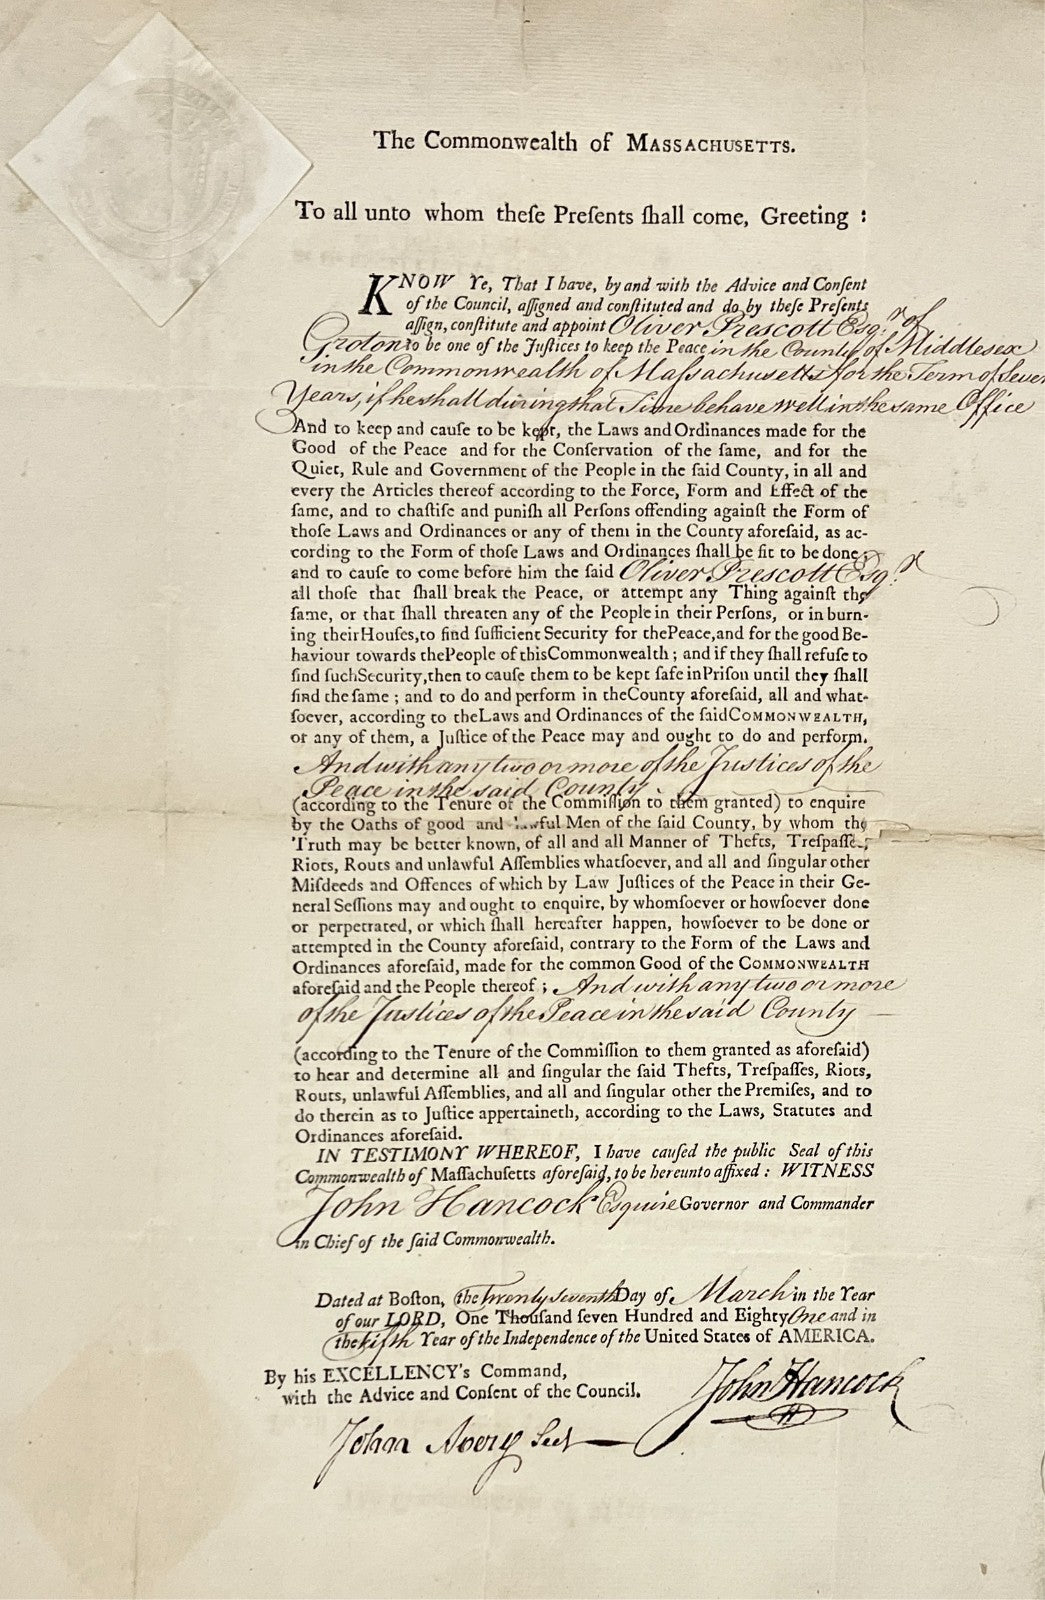 The Commonwealth of MASSACHUSETTS.
To all unto whom theſe Preſents ſhall come, Greeting :
KNOW Ye, That I have, by and with the Advice and Conſent
of the Council, aſſigned and conſtituted and do by theſe Preſents
aſſign, conſtitute and appoint Oliver Prescott Esqr. of
Groton to be one of the Juſtices to keep the Peace in the County of Middlesex
in the Commonwealth of Maſsachusetts for the Term of Seven
Years, if he shall during that Time behave well in the same Office
And to keep and cauſe to be kept, the Laws and Ordinances made for the
Good of the Peace and for the Conſervation of the ſame, and for the
Quiet, Rule and Government of the People in the ſaid County, in all and
every the Articles thereof according to the Force, Form and Effect of the
ſame, and to chaſtiſe and puniſh all Perſons offending againſt the Form of
thoſe Laws and Ordinances or any of them in the County aforeſaid, as ac-
cording to the Form of thoſe Laws and Ordinances ſhall be fit to be done;
and to cauſe to come before him the ſaid Oliver Prescott Esqr.
all thoſe that ſhall break the Peace, or attempt any Thing againſt the
ſame, or that ſhall threaten any of the People in their Perſons, or in burn-
ing their Houſes, to find ſufficient Security for the Peace, and for the good Be-
haviour towards the People of this Commonwealth ; and if they ſhall refuſe to
find ſuch Security, then to cauſe them to be kept ſafe in Priſon until they ſhall
find the ſame ; and to do and perform in the County aforeſaid, all and what-
ſoever, according to the Laws and Ordinances of the ſaid COMMONWEALTH,
or any of them, a Juſtice of the Peace may and ought to do and perform.
And with any two or more of the Justices of the
Peace in the said County.
(according to the Tenure of the Commiſſion to them granted) to enquire
by the Oaths of good and lawful Men of the ſaid County, by whom the
Truth may be better known, of all and all Manner of Thefts, Treſpaſſes,
Riots, Routs and unlawful Aſſemblies whatſoever, and all and ſingular other
Miſdeeds and Offences of which by Law Juſtices of the Peace in their Ge-
neral Seſſions may and ought to enquire, by whomſoever or howſoever done
or perpetrated, or which ſhall hereafter happen, howſoever to be done or
attempted in the County aforeſaid, contrary to the Form of the Laws and
Ordinances aforeſaid, made for the common Good of the COMMONWEALTH
aforeſaid and the People thereof ; And with any two or more
of the Justices of the Peace in the said County
(according to the Tenure of the Commiſſion to them granted as aforeſaid)
to hear and determine all and ſingular the ſaid Thefts, Treſpaſſes, Riots,
Routs, unlawful Aſſemblies, and all and ſingular other the Premiſes, and to
do therein as to Juſtice appertaineth, according to the Laws, Statutes and
Ordinances aforeſaid.
IN TESTIMONY WHEREOF, I have cauſed the public Seal of this
Commonwealth of Maſſachuſetts aforeſaid, to be hereunto affixed : WITNESS
John Hancock Esquire Governor and Commander
in Chief of the ſaid Commonwealth.
Dated at Boſton, the Twenty Seventh Day of March in the Year
of our LORD, One Thouſand ſeven Hundred and Eighty One and in
the fifth Year of the Independence of the United States of AMERICA.
By his EXCELLENCY's Command,
with the Advice and Conſent of the Council.
John Hancock
John Avery Sect